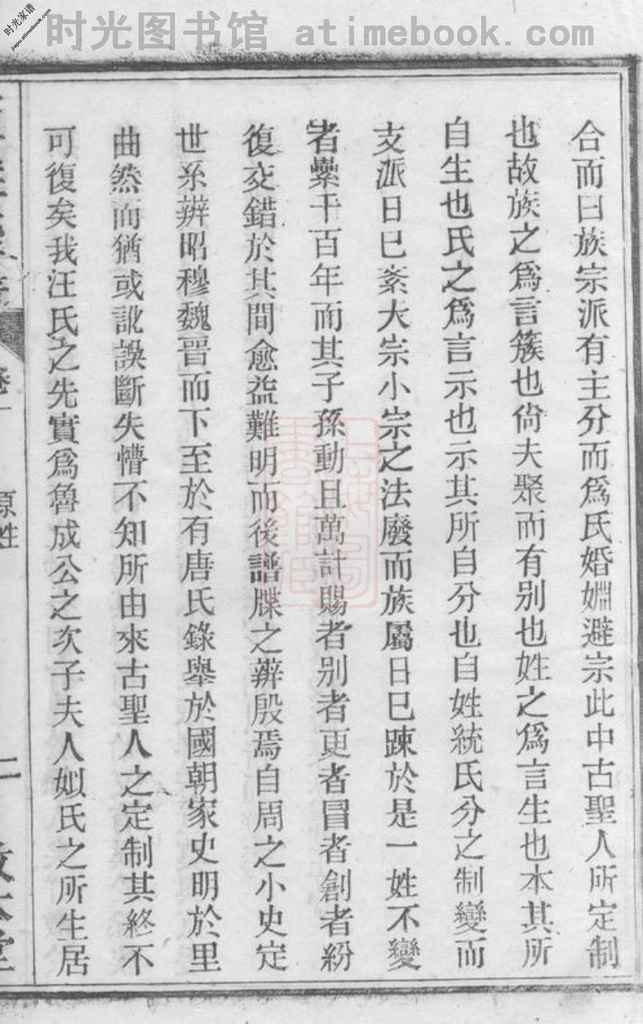 时光图书馆 atimebook.com
时光家谱
www.atimebook.com
合而曰族宗派有主分而爲氏婚婣避宗此中古聖人所定制
也故族之爲言簇也尙夫聚而有别也姓之爲言生也本其所
自生也氏之爲言示也示其所自分也自姓統氏分之制變而
支派日已紊大宗小宗之法廢而族屬日已踈於是一姓不變
者纍千百年而其子孫動且萬計賜者别者更者冒者創者紛
復交錯於其間愈益難明而後譜牒之辨殷焉自周之小史定
世系辨昭穆魏晋而下至於有唐氏錄舉於國朝家史明於里
曲然而猶或訛誤斷失懵不知所由來古聖人之定制其終不
可復矣我汪氏之先實爲魯成公之次子夫人姒氏之所生居
原姓
二